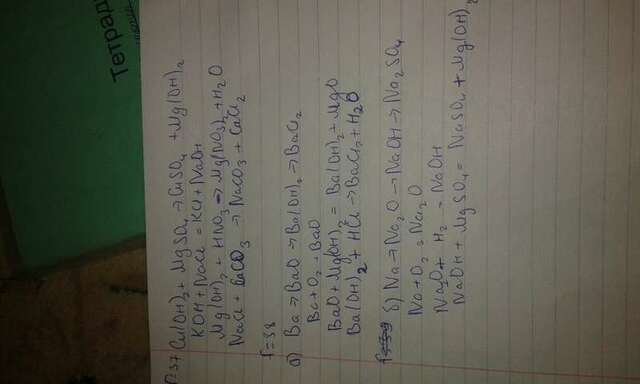 Тетрадь
Г.37 Cu(OH)2 + MgSO4 → CuSO4 + Mg(OH)2
KOH + NaCl = KCl + NaOH
Mg(OH)2 + HNO3 → Mg(NO3)2 + H2O
NaCl + CaCO3 → NaCO3 + CaCl2
Г=38
а) Ba → BaO → Ba(OH)2 → BaCl2
Ba + O2 = BaO
BaO + Mg(OH)2 = Ba(OH)2 + MgO
Ba(OH)2 + HCl → BaCl2 + H2O
б) Na → Na2O → NaOH → Na2SO4
Na + O2 = Na2O
Na2O + H2 → NaOH
NaOH + MgSO4 = NaSO4 + Mg(OH)2